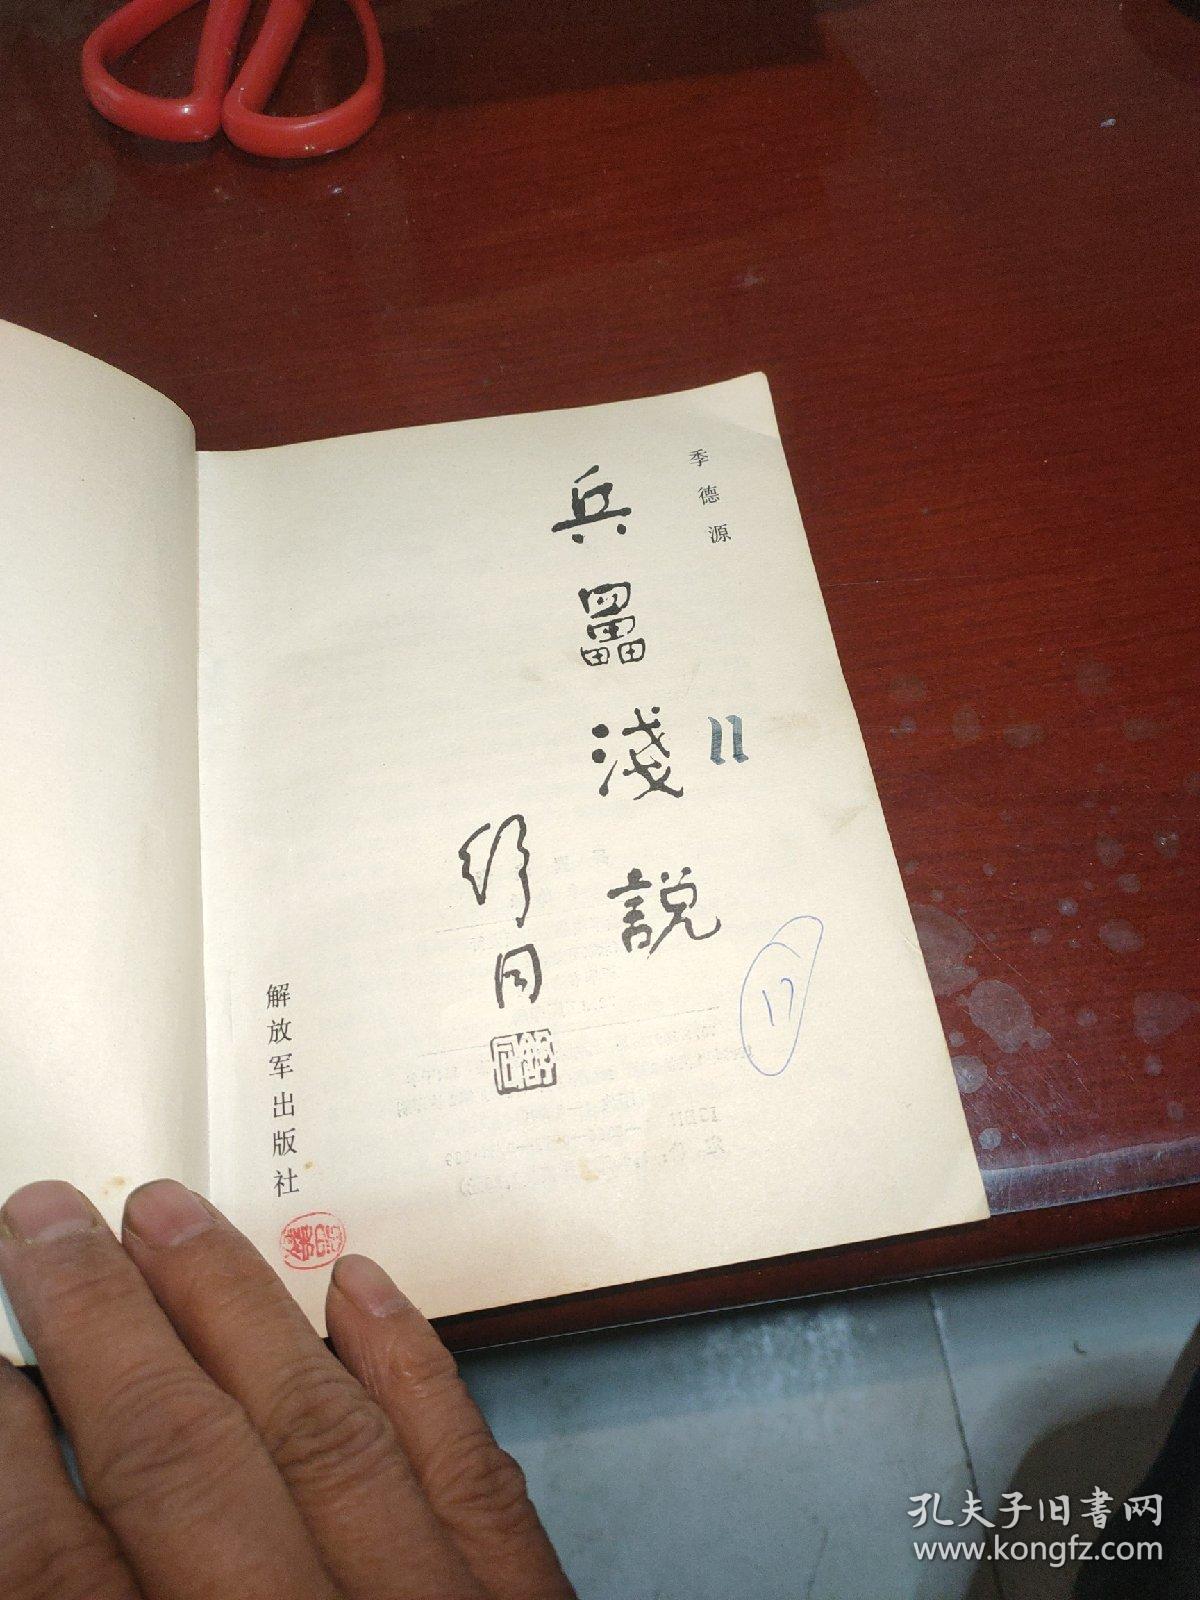 季德源
兵淺說
11
舒同
17
解放军出版社
孔夫子旧书网
www.kongfz.com